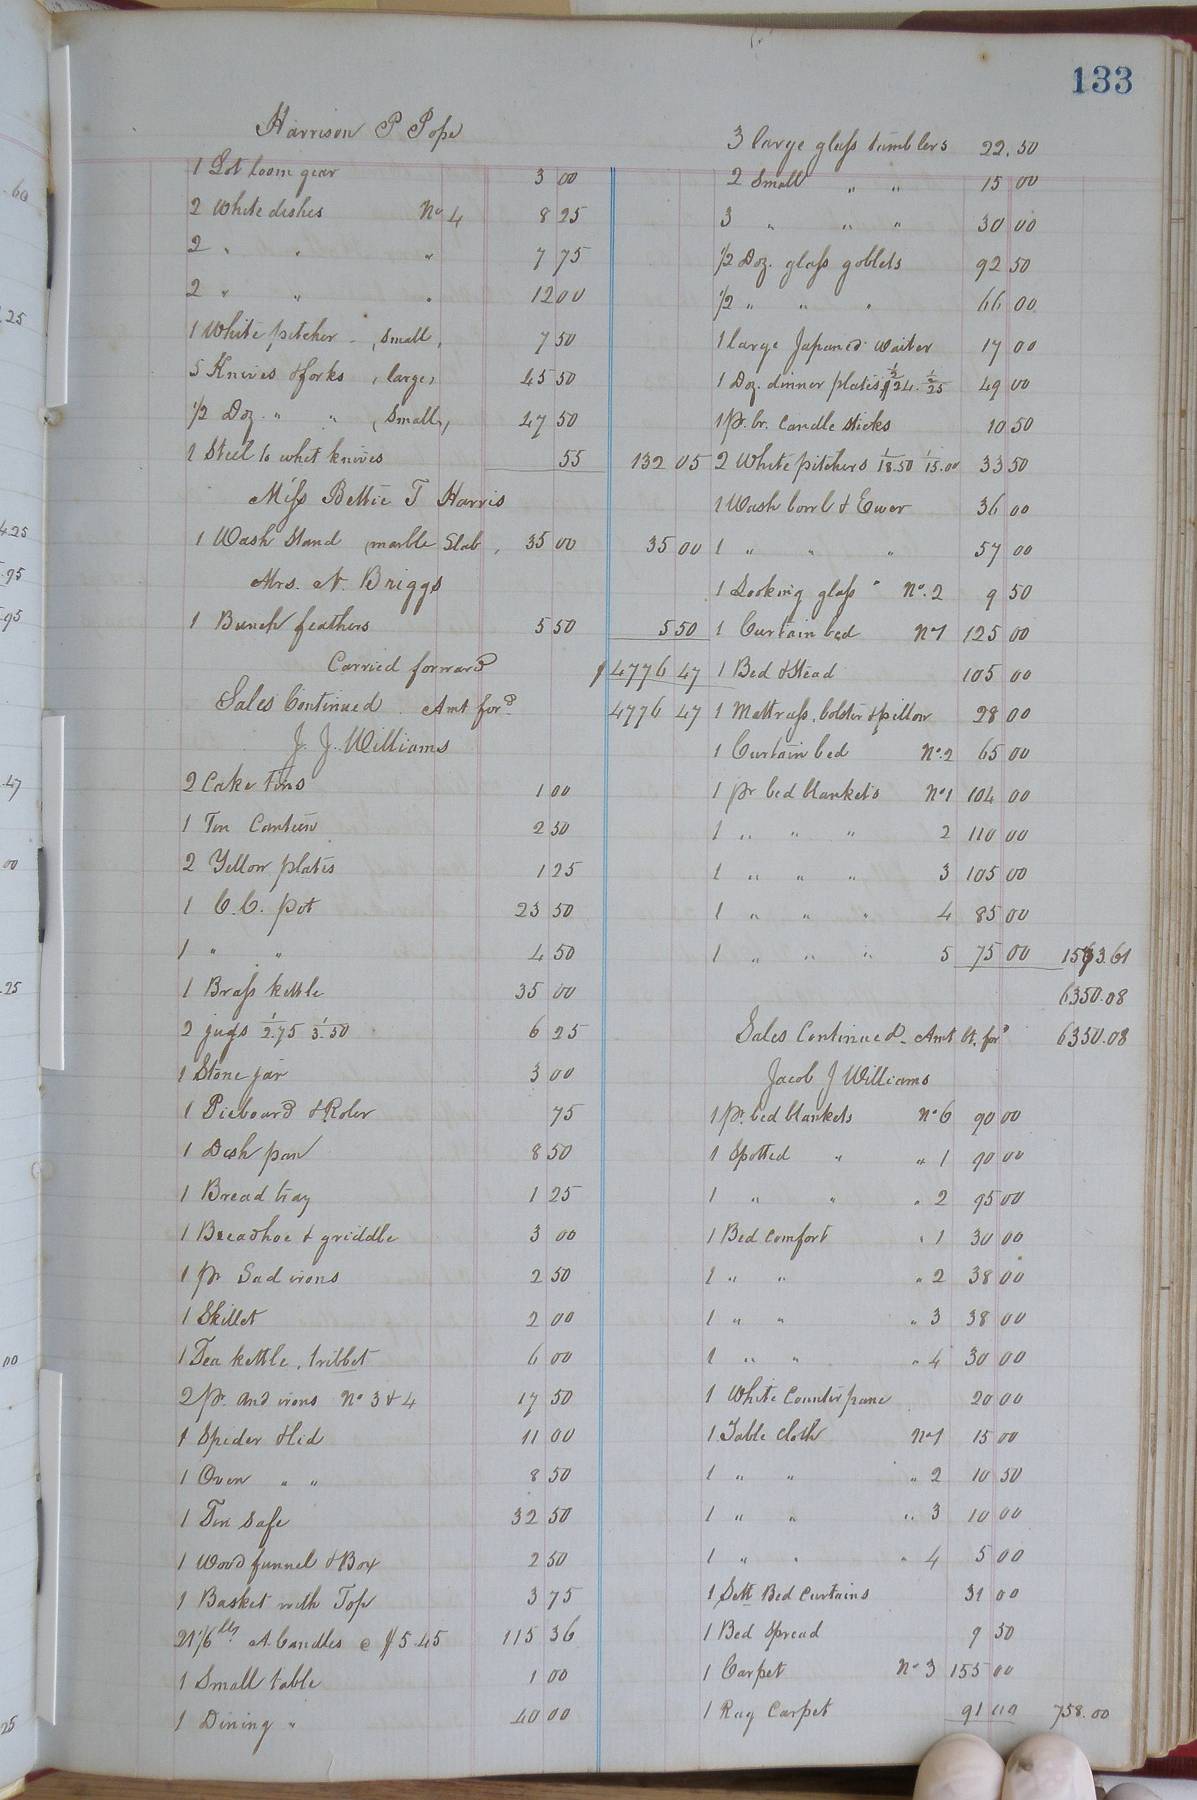 133
Harrison P Pope
1 Lot loom gear 3 00
2 White dishes No 4 8 25
2 " " " 7 75
2 " " " 12 00
1 White pitcher (small) 7 50
5 Knives & forks (large) 45 50
1/2 Doz. " " (small) 47 50
1 Steel to whet knives 55 132 05
Miss Bettie T Harris
1 Wash Stand (marble Slab) 35 00 35 00
Mrs. N. Briggs
1 Bunch feathers 5 50 5 50
Carried forward $ 4776 47
Sales Continued Amt ford 4776 47
J. J. Williams
2 Cake Tins 1 00
1 Tin Canteen 2 50
2 Yellow plates 1 25
1 C. C. pot 23 50
1 " " 4 50
1 Brass kettle 35 00
2 jugs 1/2.75 1/3.50 6 25
1 Stone jar 3 00
1 Pieboard & Roler 75
1 Dish pan 8 50
1 Bread tray 1 25
1 Breadhoe & griddle 3 00
1 pr Sad irons 2 50
1 Skillet 2 00
1 Tea kettle, tribbet 6 00
2 pr. and irons No 3 & 4 17 50
1 Spider & lid 11 00
1 Oven " " 8 50
1 Tin Safe 32 50
1 Wood funnel & Box 2 50
1 Basket with Top 3 75
21 1/6 lbs A. Candles @ $5.45 115 36
1 Small table 1 00
1 Dining " 40 00
3 large glass tumblers 22.50
2 Small " " 15 00
3 " " " 30 00
1/2 Doz. glass goblets 92 50
1/2 " " " 66 00
1 large Japaned waiter 17 00
1 Doz. dinner plates 1/2 $24. 1/2 25 49 00
1 pr. br. Candle sticks 10 50
2 White pitchers 1/18.50 1/15.00 33 50
1 Wash bowl & Ewer 36 00
1 " " " 57 00
1 Looking glass " No. 2 9 50
1 Curtain bed No 1 125 00
1 Bed & Stead 105 00
1 Mattrass, bolster & pillow 28 00
1 Curtain bed No. 2 65 00
1 pr bed blankets No 1 104 00
1 " " " 2 110 00
1 " " " 3 105 00
1 " " " 4 85 00
1 " " " 5 75 00 1573.61
6350.08
Sales Continued Amt bt. ford 6350.08
Jacob J Williams
1 pr. bed blankets No 6 90 00
1 Spotted " " 1 90 00
1 " " " 2 95 00
1 Bed comfort " 1 30 00
1 " " " 2 38 00
1 " " " 3 38 00
1 " " " 4 30 00
1 White Counterpane 20 00
1 Table cloth No 1 15 00
1 " " " 2 10 50
1 " " " 3 10 00
1 " " " 4 5 00
1 Sett Bed Curtains 31 00
1 Bed Spread 9 50
1 Carpet No 3 155 00
1 Rag Carpet 91 00 758.00